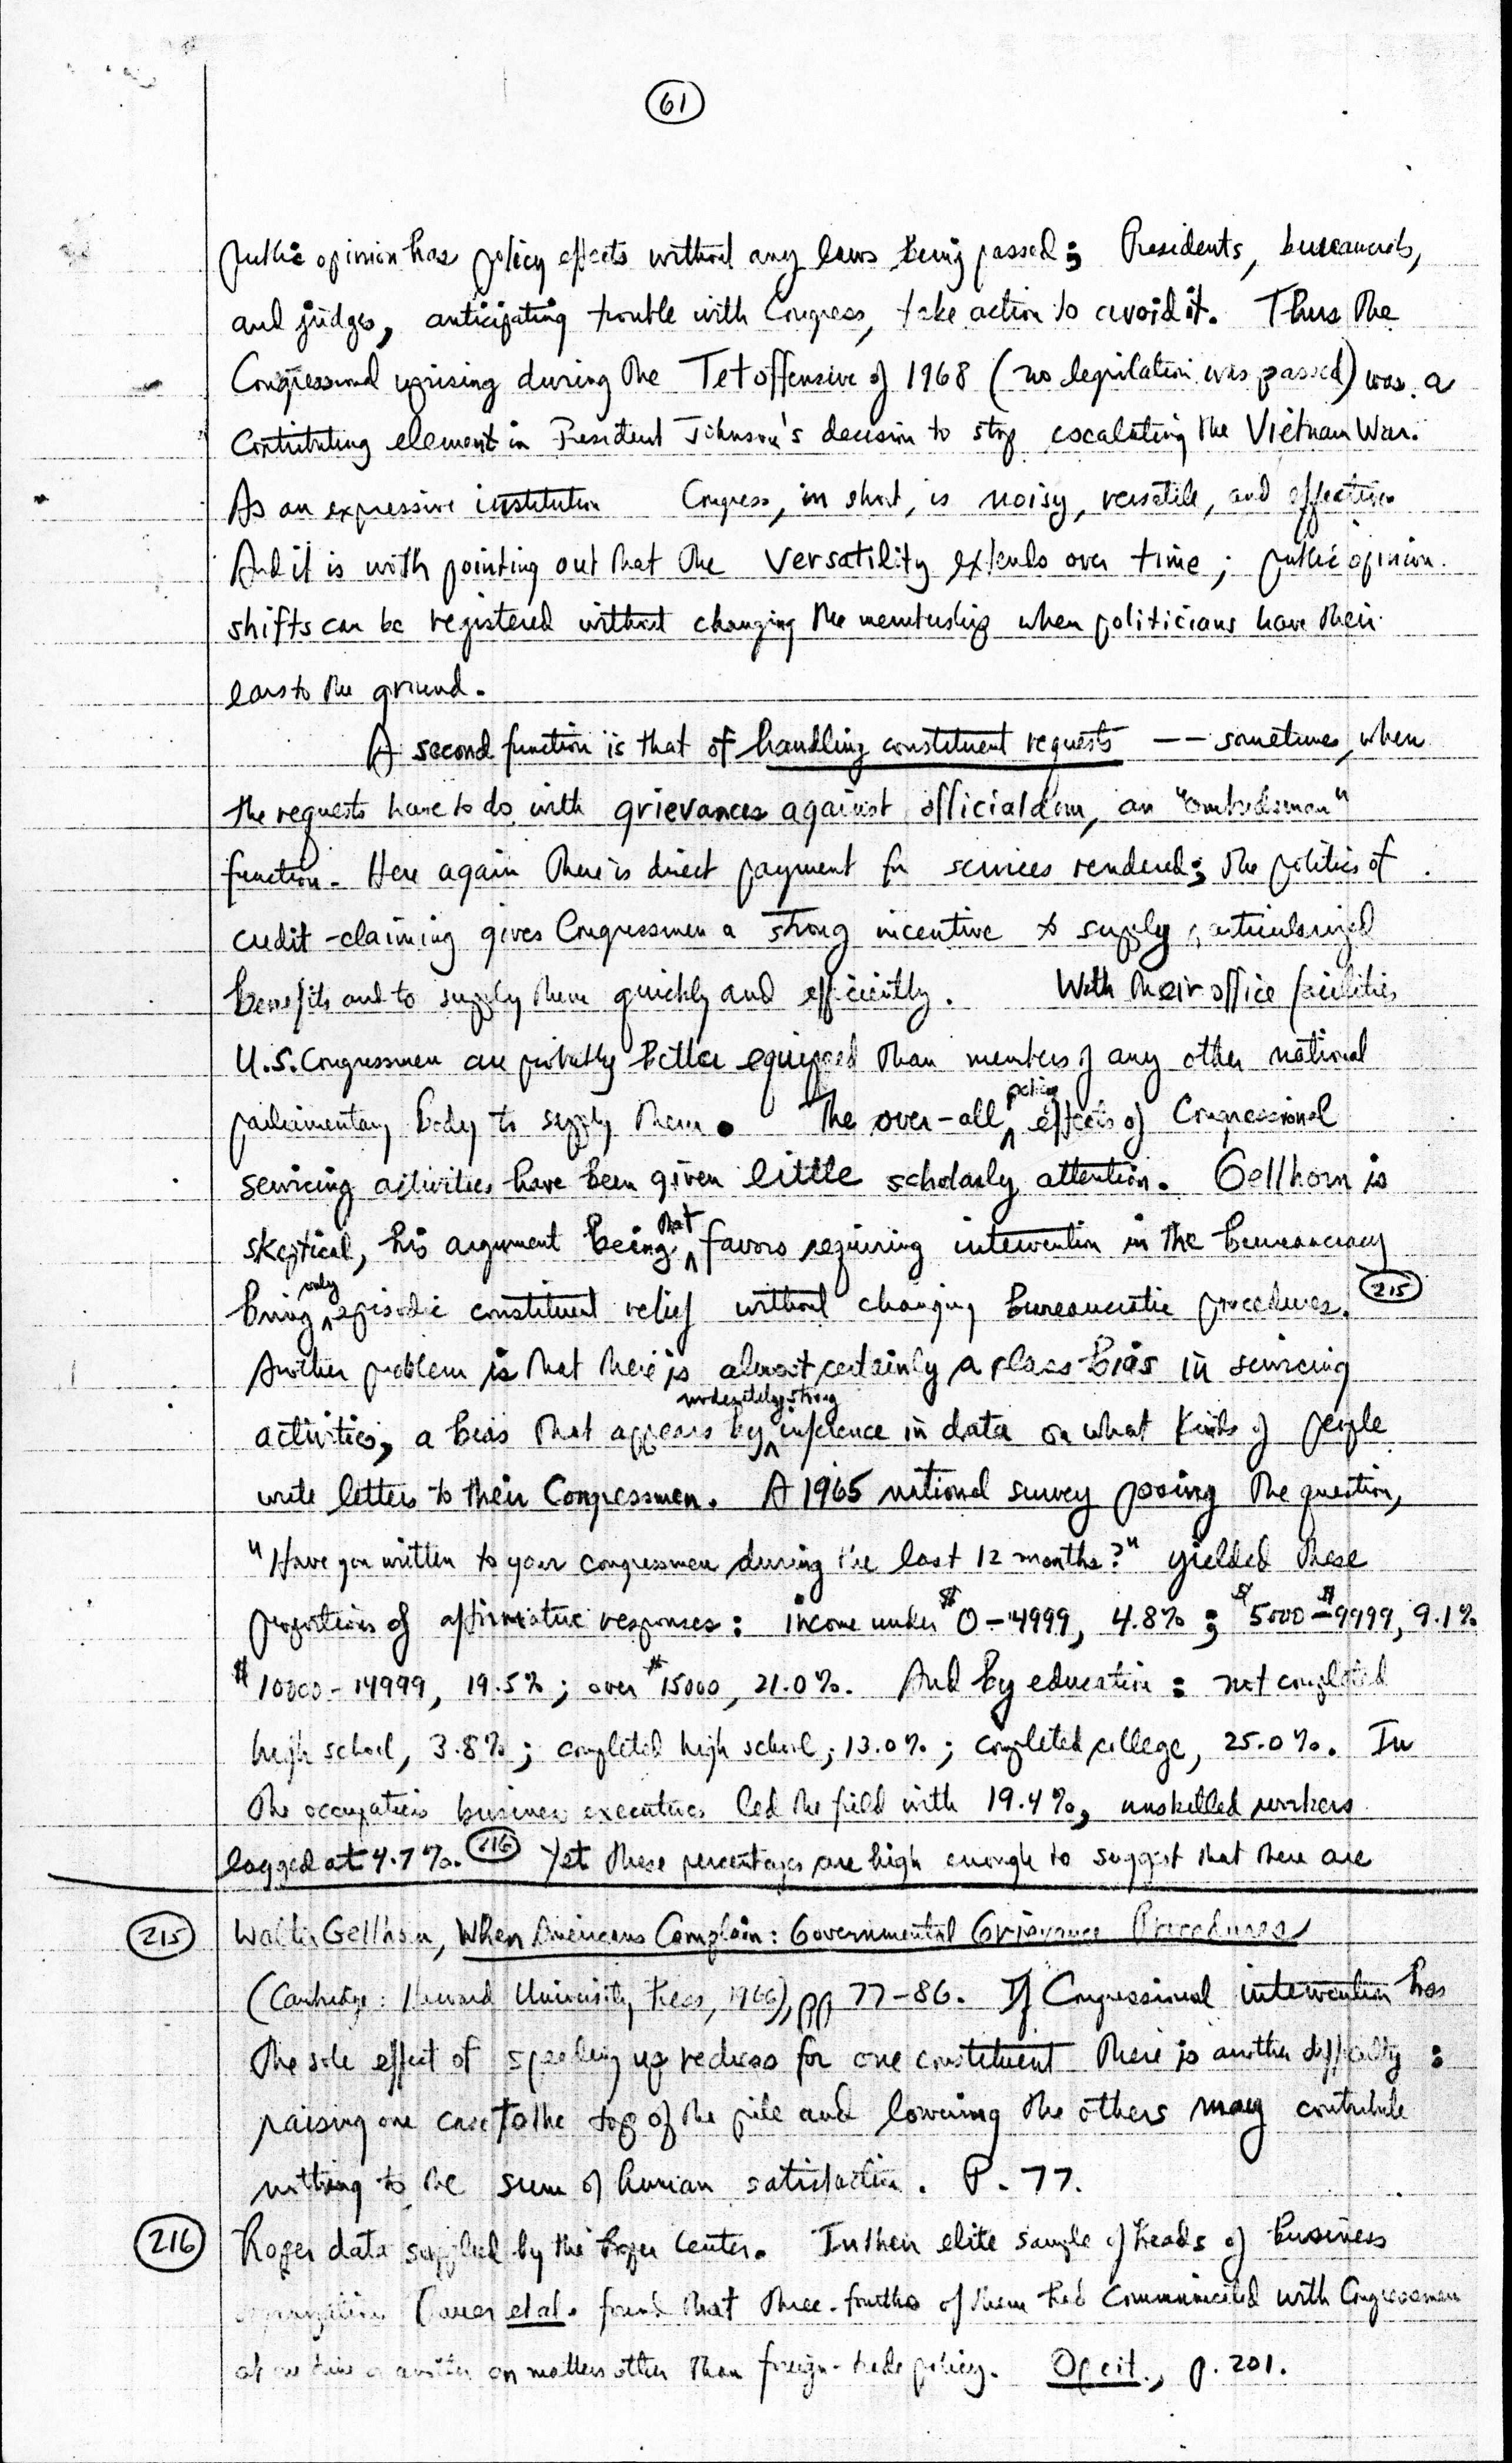 61
public opinion has policy effects without any laws being passed; Presidents, bureaucrats,
and judges, anticipating trouble with Congress, take action to avoid it. Thus the
Congressional uprising during the Tet offensive of 1968 (no legislation was passed) was a
contributing element in President Johnson's decision to stop escalating the Vietnam War.
As an expressive institution Congress, in short, is noisy, versatile, and effective
And it is worth pointing out that the versatility extends over time; public opinion
shifts can be registered without changing the membership when politicians have their
ears to the ground.
A second function is that of handling constituent requests -- sometimes, when
the requests have to do with grievances against officialdom, an "ombudsman"
function. Here again there is direct payment for services rendered; the politics of
credit-claiming gives Congressmen a strong incentive to supply particularized
benefits and to supply them quickly and efficiently. With their office facilities
U.S. Congressmen are probably better equipped than members of any other national
parliamentary body to supply them. The over-all policy effects of Congressional
servicing activities have been given little scholarly attention. Gellhorn is
skeptical, his argument being that favors requiring intervention in the bureaucracy
bring only episodic constituent relief without changing bureaucratic procedures. 215
Another problem is that there is almost certainly a class bias in servicing
activities, a bias that appears by moderately strong inference in data on what kinds of people
write letters to their Congressmen. A 1965 national survey posing the question,
"Have you written to your congressmen during the last 12 months?" yielded these
proportions of affirmative responses: income under $0-4999, 4.8%; $5000-$9999, 9.1%
$10000-14999, 19.5%; over $15000, 21.0%. And by education: not completed
high school, 3.8%; completed high school, 13.0%; completed college, 25.0%. In
the occupations business executives led the field with 19.4%, unskilled workers
lagged at 4.7%. 216 Yet these percentages are high enough to suggest that there are
215 Walter Gellhorn, When Americans Complain: Governmental Grievance Procedures
(Cambridge: Harvard University Press, 1966), pp 77-86. If Congressional intervention has
the sole effect of speeding up redress for one constituent there is another difficulty:
raising one case to the top of the pile and lowering the others may contribute
nothing to the sum of human satisfaction. P. 77.
216 Roper data supplied by the Roper Center. In their elite sample of heads of business
organizations Bauer et al. found that three-fourths of them had communicated with Congressmen
at one time or another on matters other than foreign-trade policy. Op cit., p. 201.